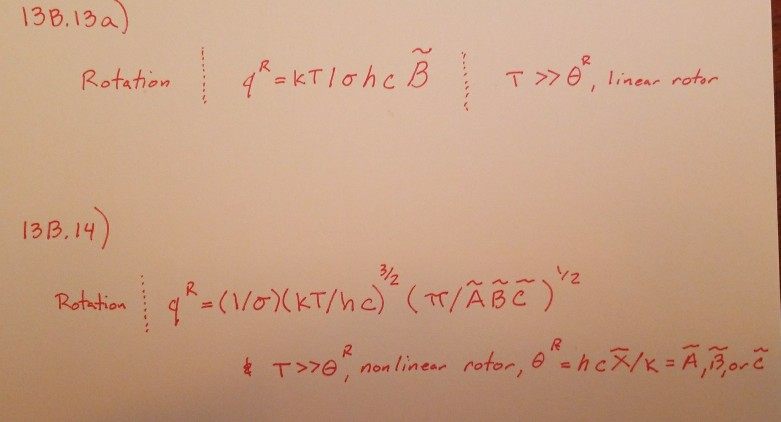 13B.13a)
Rotation ⋮ q^R = kT/σhcB̃ ⋮ T >> θ^R, linear rotor
13B.14)
Rotation ⋮ q^R = (1/σ)(kT/hc)^3/2 (π/ÃB̃C̃)^1/2
T>>θ^R, nonlinear rotor, θ^R = hcX̃/k = Ã, B̃, or C̃